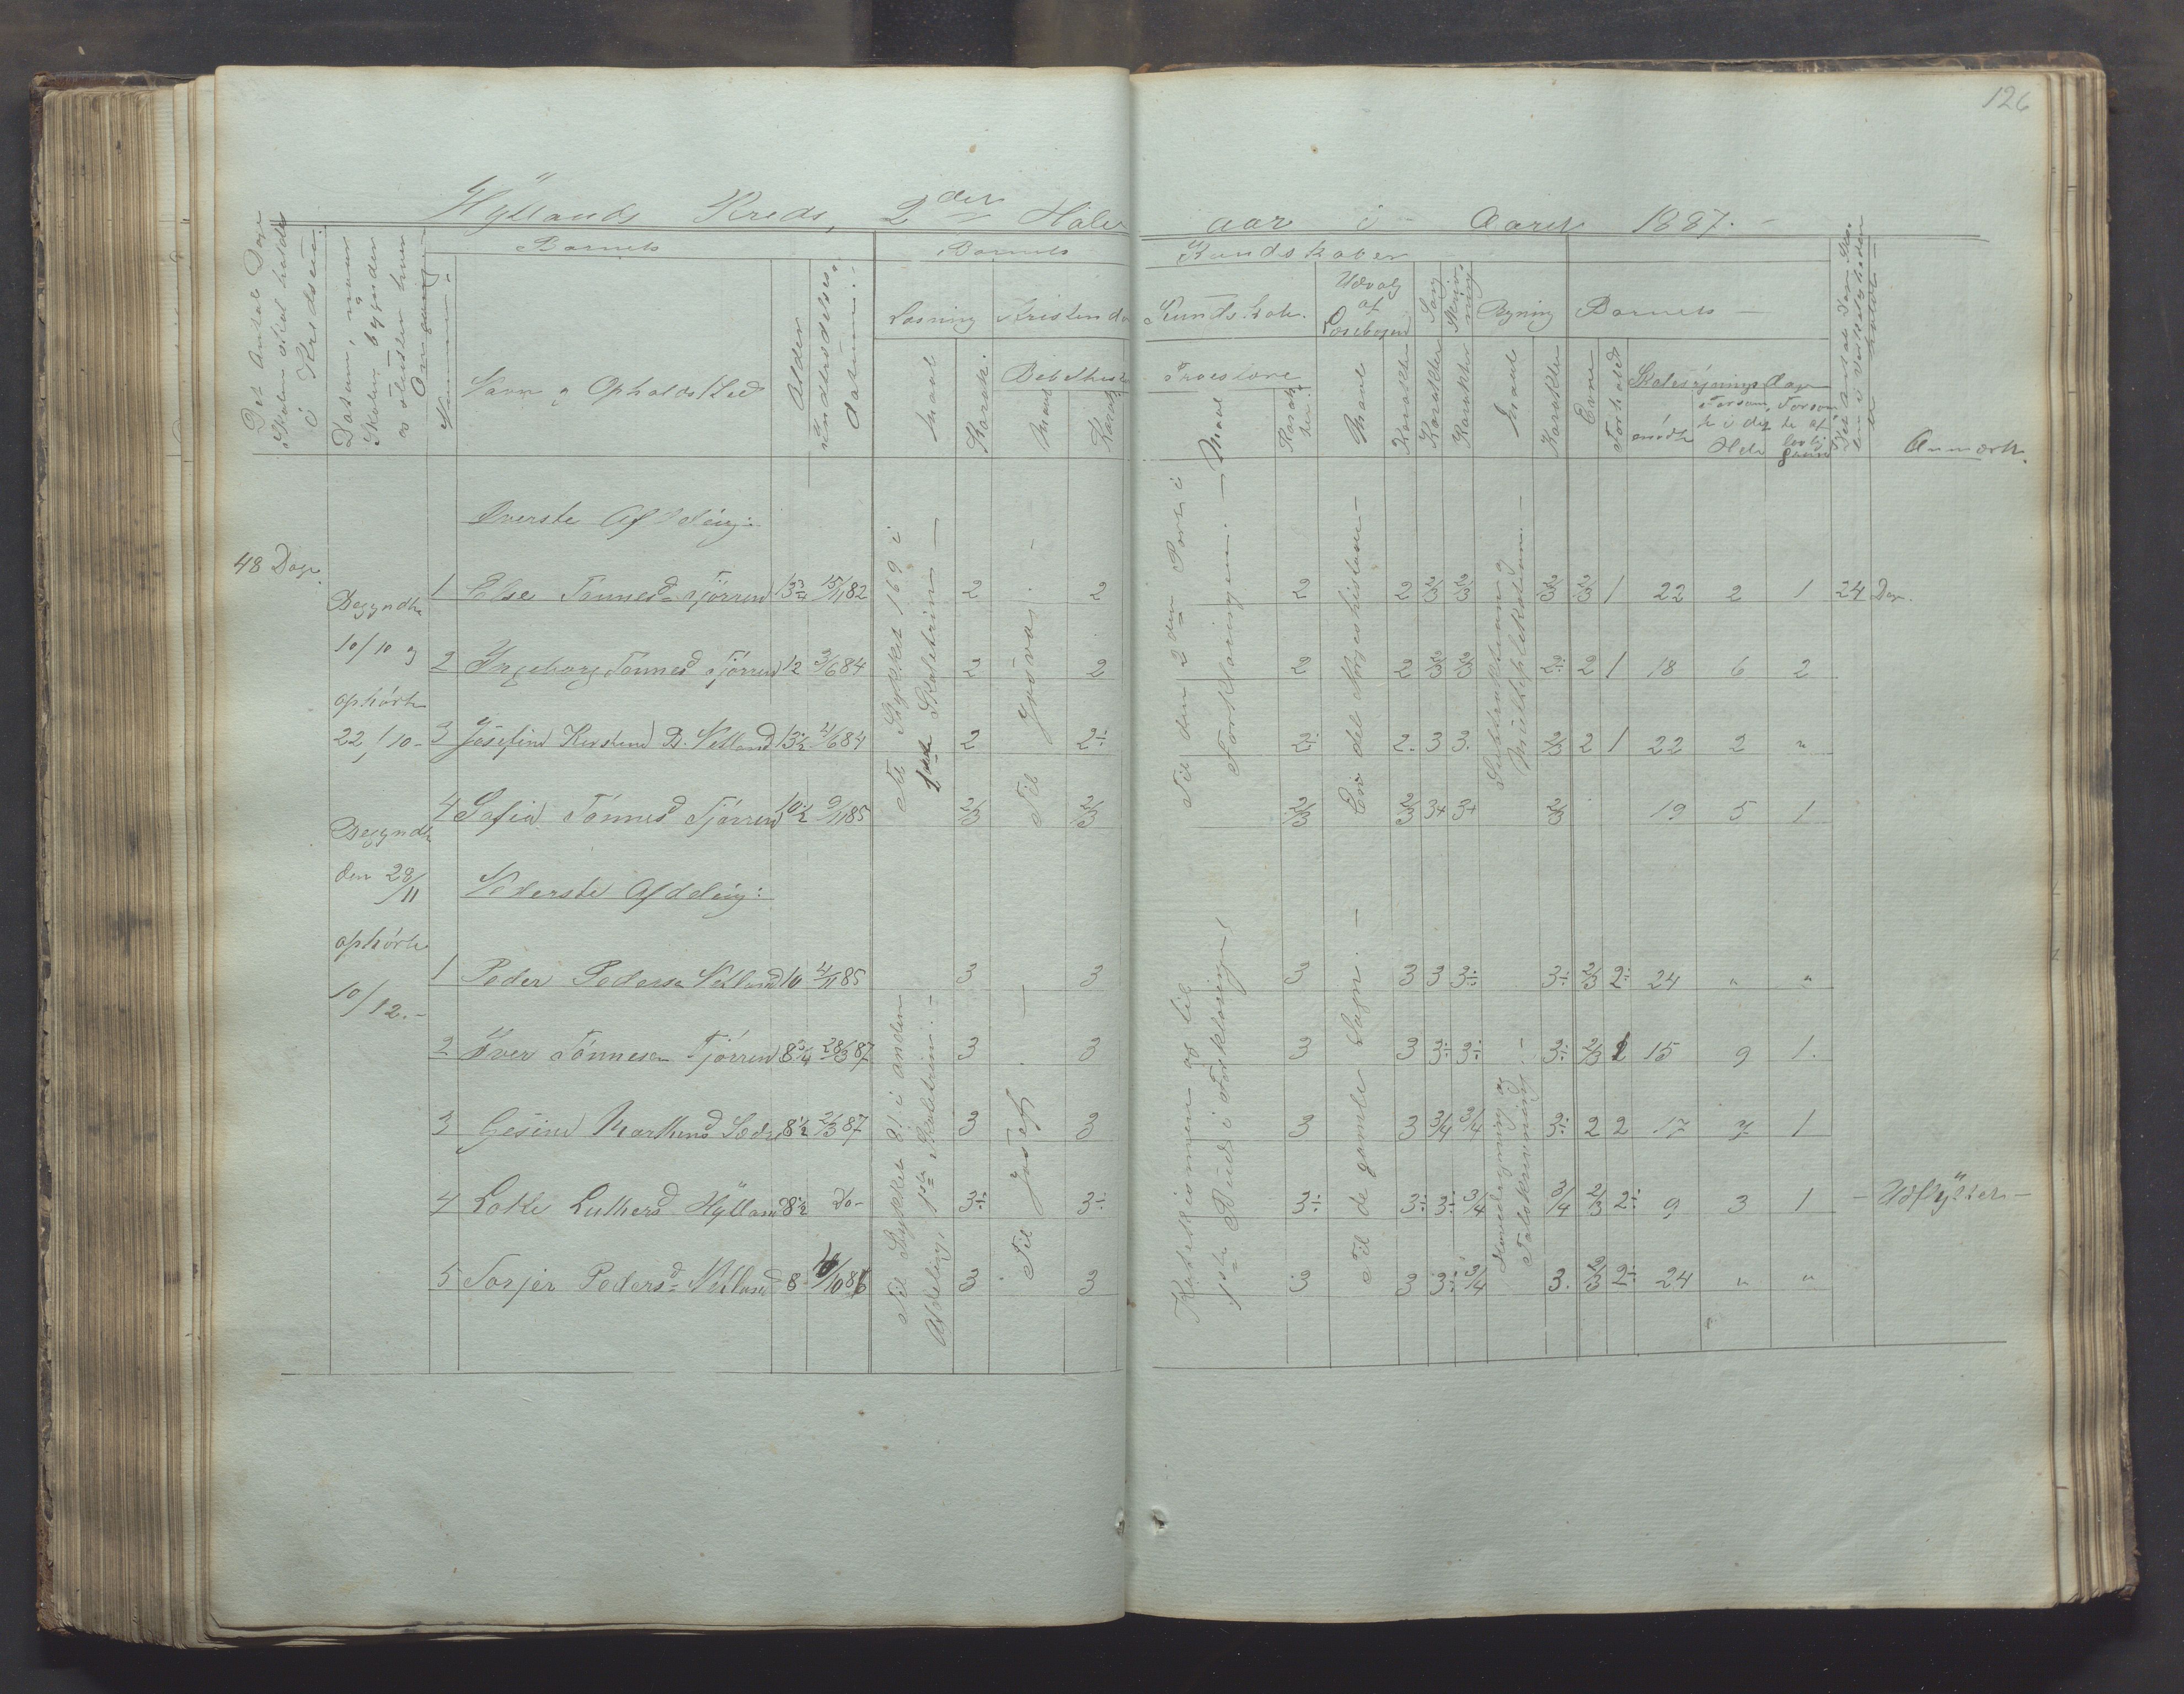 126
Hyllands Kreds, 2det Halv aar i Aaret 1887.
Det Antal Dage Skolen skal holdes i Kredsen.
Datum, naar Skolen begynder og slutter hver Omgang
Nummer.
Barnets
Navn og Opholdssted
Alder
Indtrædelses datum.
Barnets Kundskaber
Læsning
Maal
Karakt.
Kristendomskundskab.
Bibelhistorie
Maal
Karakt.
Troeslære
Maal
Karakter.
Udvalg af Læsebogen
Maal
Karakter
Sang
Karakter
Skrivning
Karakter
Regning
Maal
Karakter
Barnets
Evne
Forhold
Skolesøgningsdage
mødte
Forsømte i det Hele
Forsømte af lovlig Grund
Det Antal Dage Skolen i Virkeligheden er holdt
Anmærk.
Øverste Afdeling:
48 Dage.
Begyndte 10/10 og ophørte 22/10 -
Begyndte den 28/11 ophørte 10/12. -
Til Stykket 169 i 1ste Skoletrin
Til den 2den Part i Forklaringen.
En del Kirkehistorie
Subtraktion og Multiplikation.
1 Else Tønnesd. Tjørren 13 3/4 15/11 82 2 2 2 2 2/3 2/3 2/3 2/3 1 22 2 1 24 Dage.
2 Ingeborg Tønnesd Tjørren 12 3/6 84 2 2 2 2 2/3 2/3 2 1 18 6 2
3 Josefine Kirstine P. Netland 13 1/2 4/6 84 2 2 2 2 3 3 2/3 2 1 22 2 "
4 Sofie Tønnesd Tjørren 10 1/2 9/11 85 2/3 2/3 2/3 2/3 3+ 3+ 2/3 19 5 1
Nederste Afdeling:
Til Stykket 81 i anden Afdeling, 1ste Skoletrin.
Til Josef
Katekismen og til 1ste Bud i Forklaringen
Til de gamle Sagn.
Hovedregning og Talskrivning.
1 Peder Peders. Netland 10 4/11 85 3 3 3 3 3 3÷ 3÷ 2/3 2÷ 24 " "
2 Iver Tønnesen Tjørren 8 3/4 28/3 87 3 3 3 3 3÷ 3÷ 3÷ 2/3 15 9 1.
3 Gesine Martinsd 8 1/2 2/3 87 3 3 3 3 3/4 3/4 3÷ 2 2 17 7 1
4 Lukas Hylland 8 1/2 do- 3÷ 3÷ 3÷ 3÷ 3÷ 3/4 3/4 2/3 2÷ 9 3 1 - Udflyttet -
5 Torjer Peders. Netland 8 /10 86 3 3 3 3 3÷ 3/4 3. 2/3 2÷ 24 " "